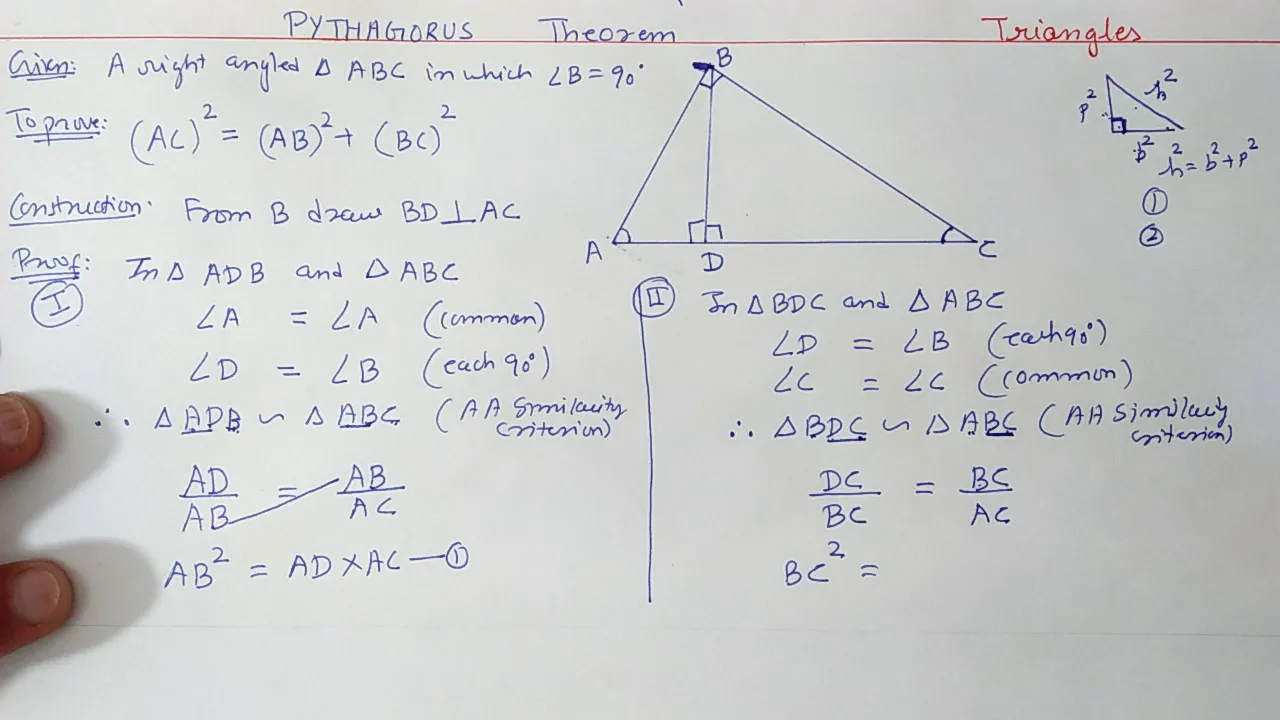 PYTHAGORUS Theorem
Triangles
Given: A right angled △ ABC in which ∠B = 90°
To prove: (AC)² = (AB)² + (BC)²
Construction: From B draw BD ⊥ AC
B
A
D
C
P²
h²
b²
h² = b² + P²
①
②
Proof: In △ ADB and △ ABC
Ⓘ
∠A = ∠A (common)
∠D = ∠B (each 90°)
∴ △ ADB ∽ △ ABC (AA Similarity criterion)
AD/AB = AB/AC
AB² = AD × AC — ①
Ⅱ In △ BDC and △ ABC
∠D = ∠B (each 90°)
∠C = ∠C (common)
∴ △ BDC ∽ △ ABC (AA Similarity criterion)
DC/BC = BC/AC
BC² =